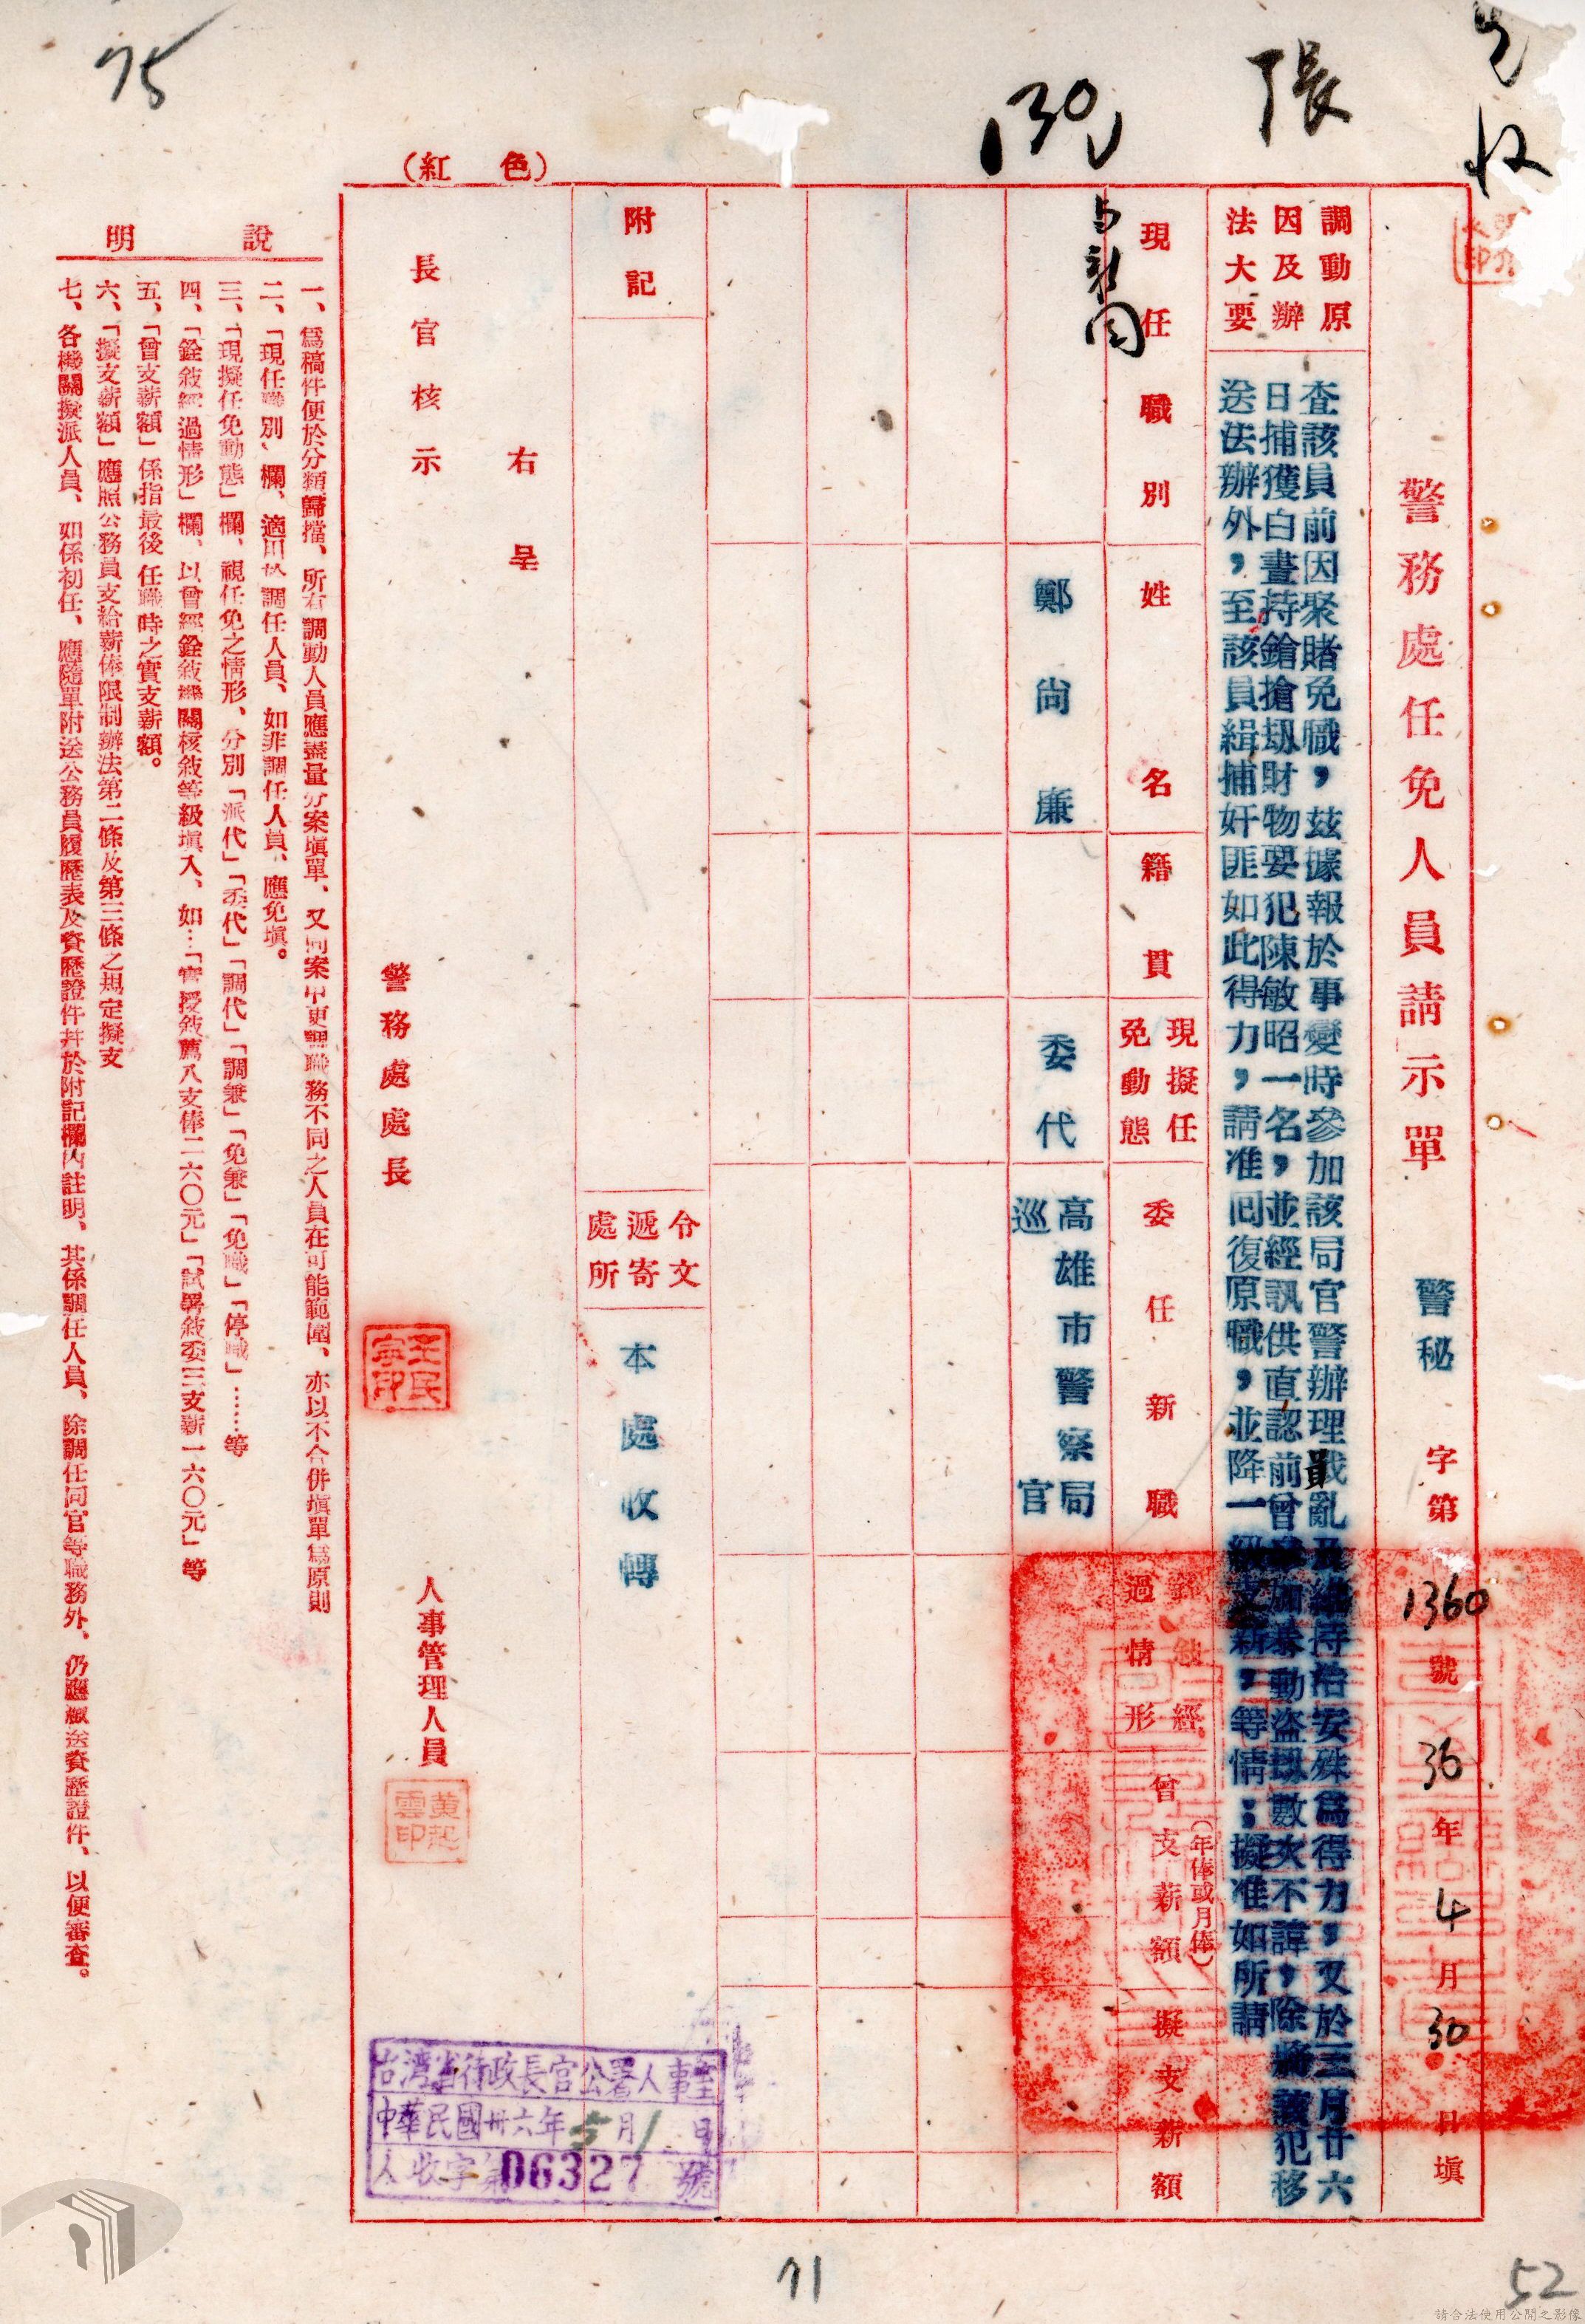 75
張
(紅色)
警務處任免人員請示單 警秘字第1360號36年4月30日填
調動原因及辦法大要
查該員前因聚賭免職,茲據報於事變時參加該局官警辦理戡亂及維持治安殊為得力,又於三月廿六
日捕獲白晝持鎗搶刼財物要犯陳敏昭一名,並經訊供直認前曾參加暴動盜刼數次不諱,除將該犯移
送法辦外,至該員緝捕奸匪如此得力,請准囘復原職,並降一級支薪,等情;擬准如所請
現任職別
姓名
籍貫
現擬任免動態
委任新職
銓敍經過情形
曾支薪額
(年俸或月俸)
擬支薪額
鄭尚廉
委代
高雄市警察局
巡官
附記
令文遞寄處所
本處收轉
右呈
長官核示
警務處處長
王民寧印
人事管理人員
台灣省行政長官公署人事室
中華民國卅六年5月1日
人收字第06327號
說明
一、為稿件便於分類歸擋、所有調動人員應盡量分案塡單、又同案中更調職務不同之人員在可能範圍、亦以不合併塡單為原則
二、「現任職別」欄、適用於調任人員、如非調任人員、應免塡。
三、「現擬任免動態」欄、視任免之情形、分別「派代」「委代」「調代」「調兼」「免兼」「免職」「停職」……等
四、「銓敍經過情形」欄、以曾經銓敍機關核敍等級塡入、如…「實授敍薦八支俸二六〇元」「試署敍委三支薪一六〇元」等
五、「曾支薪額」係指最後任職時之實支薪額。
六、「擬支薪額」應照公務員支給薪俸限制辦法第二條及第三條之規定擬支
七、各機關擬派人員、如係初任、應隨單附送公務員履歷表及資歷證件幷於附記欄內註明、其係調任人員、除調任同官等職務外、仍應繳送資歷證件、以便審查。
71
52
請合法使用公開之影像